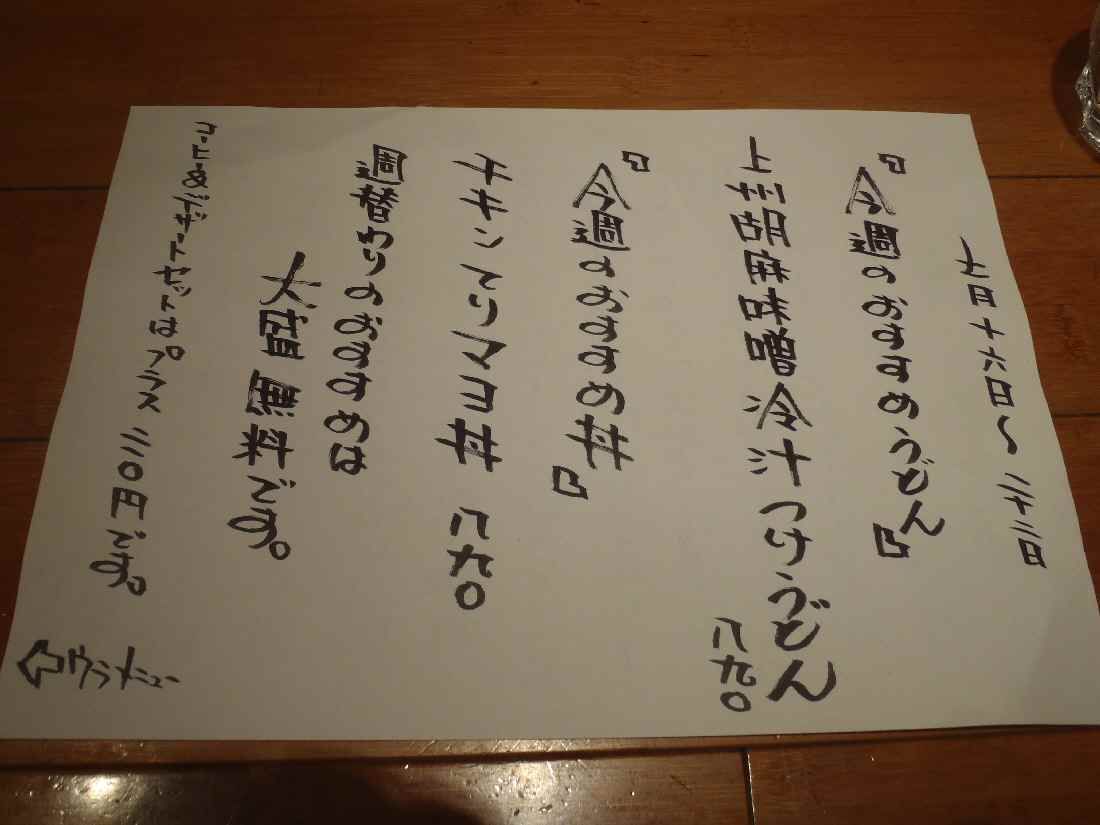 七月十六日〜二十二日
『今週のおすすめうどん』
上州胡麻味噌冷汁つけうどん
八九〇
『今週のおすすめ丼』
チキンてりマヨ丼 八九〇
週替わりのおすすめは
大盛無料です。
コーヒー&デザートセットはプラス二二〇円です。
⇦ウラメニュー